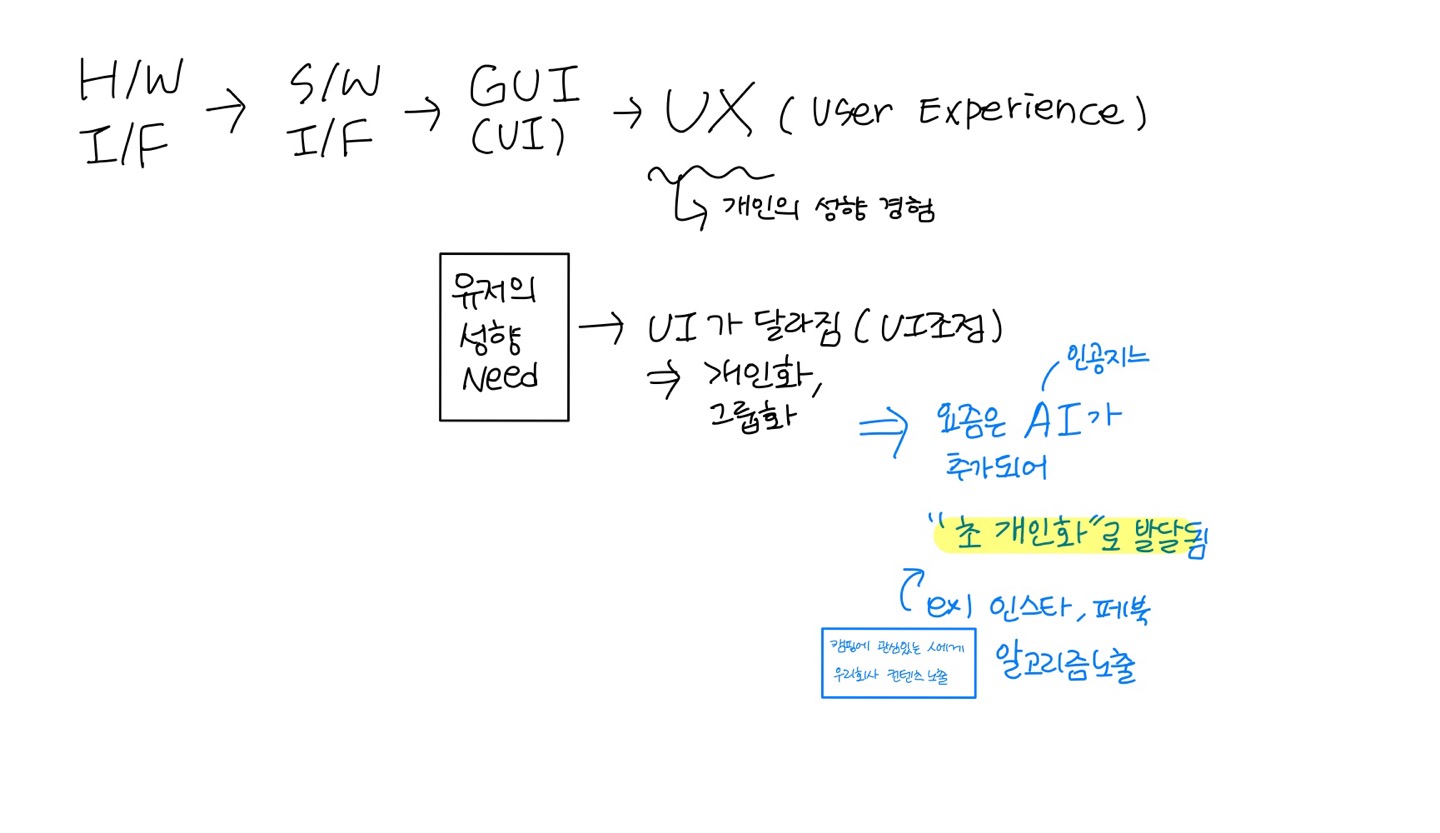 H/W → S/W → GUI → UX (User Experience)
I/F I/F (UI)
↳ 개인의 성향 경험
유저의
성향
Need
→ UI가 달라짐 (UI조정)
⇒ 개인화,
그룹화
인공지느
⇒ 요즘은 AI가
추가되어
"초 개인화"로 발달됨
ex) 인스타, 페북
알고리즘노출
캠핑에 관심있는 사에게
우리회사 컨텐츠 노출